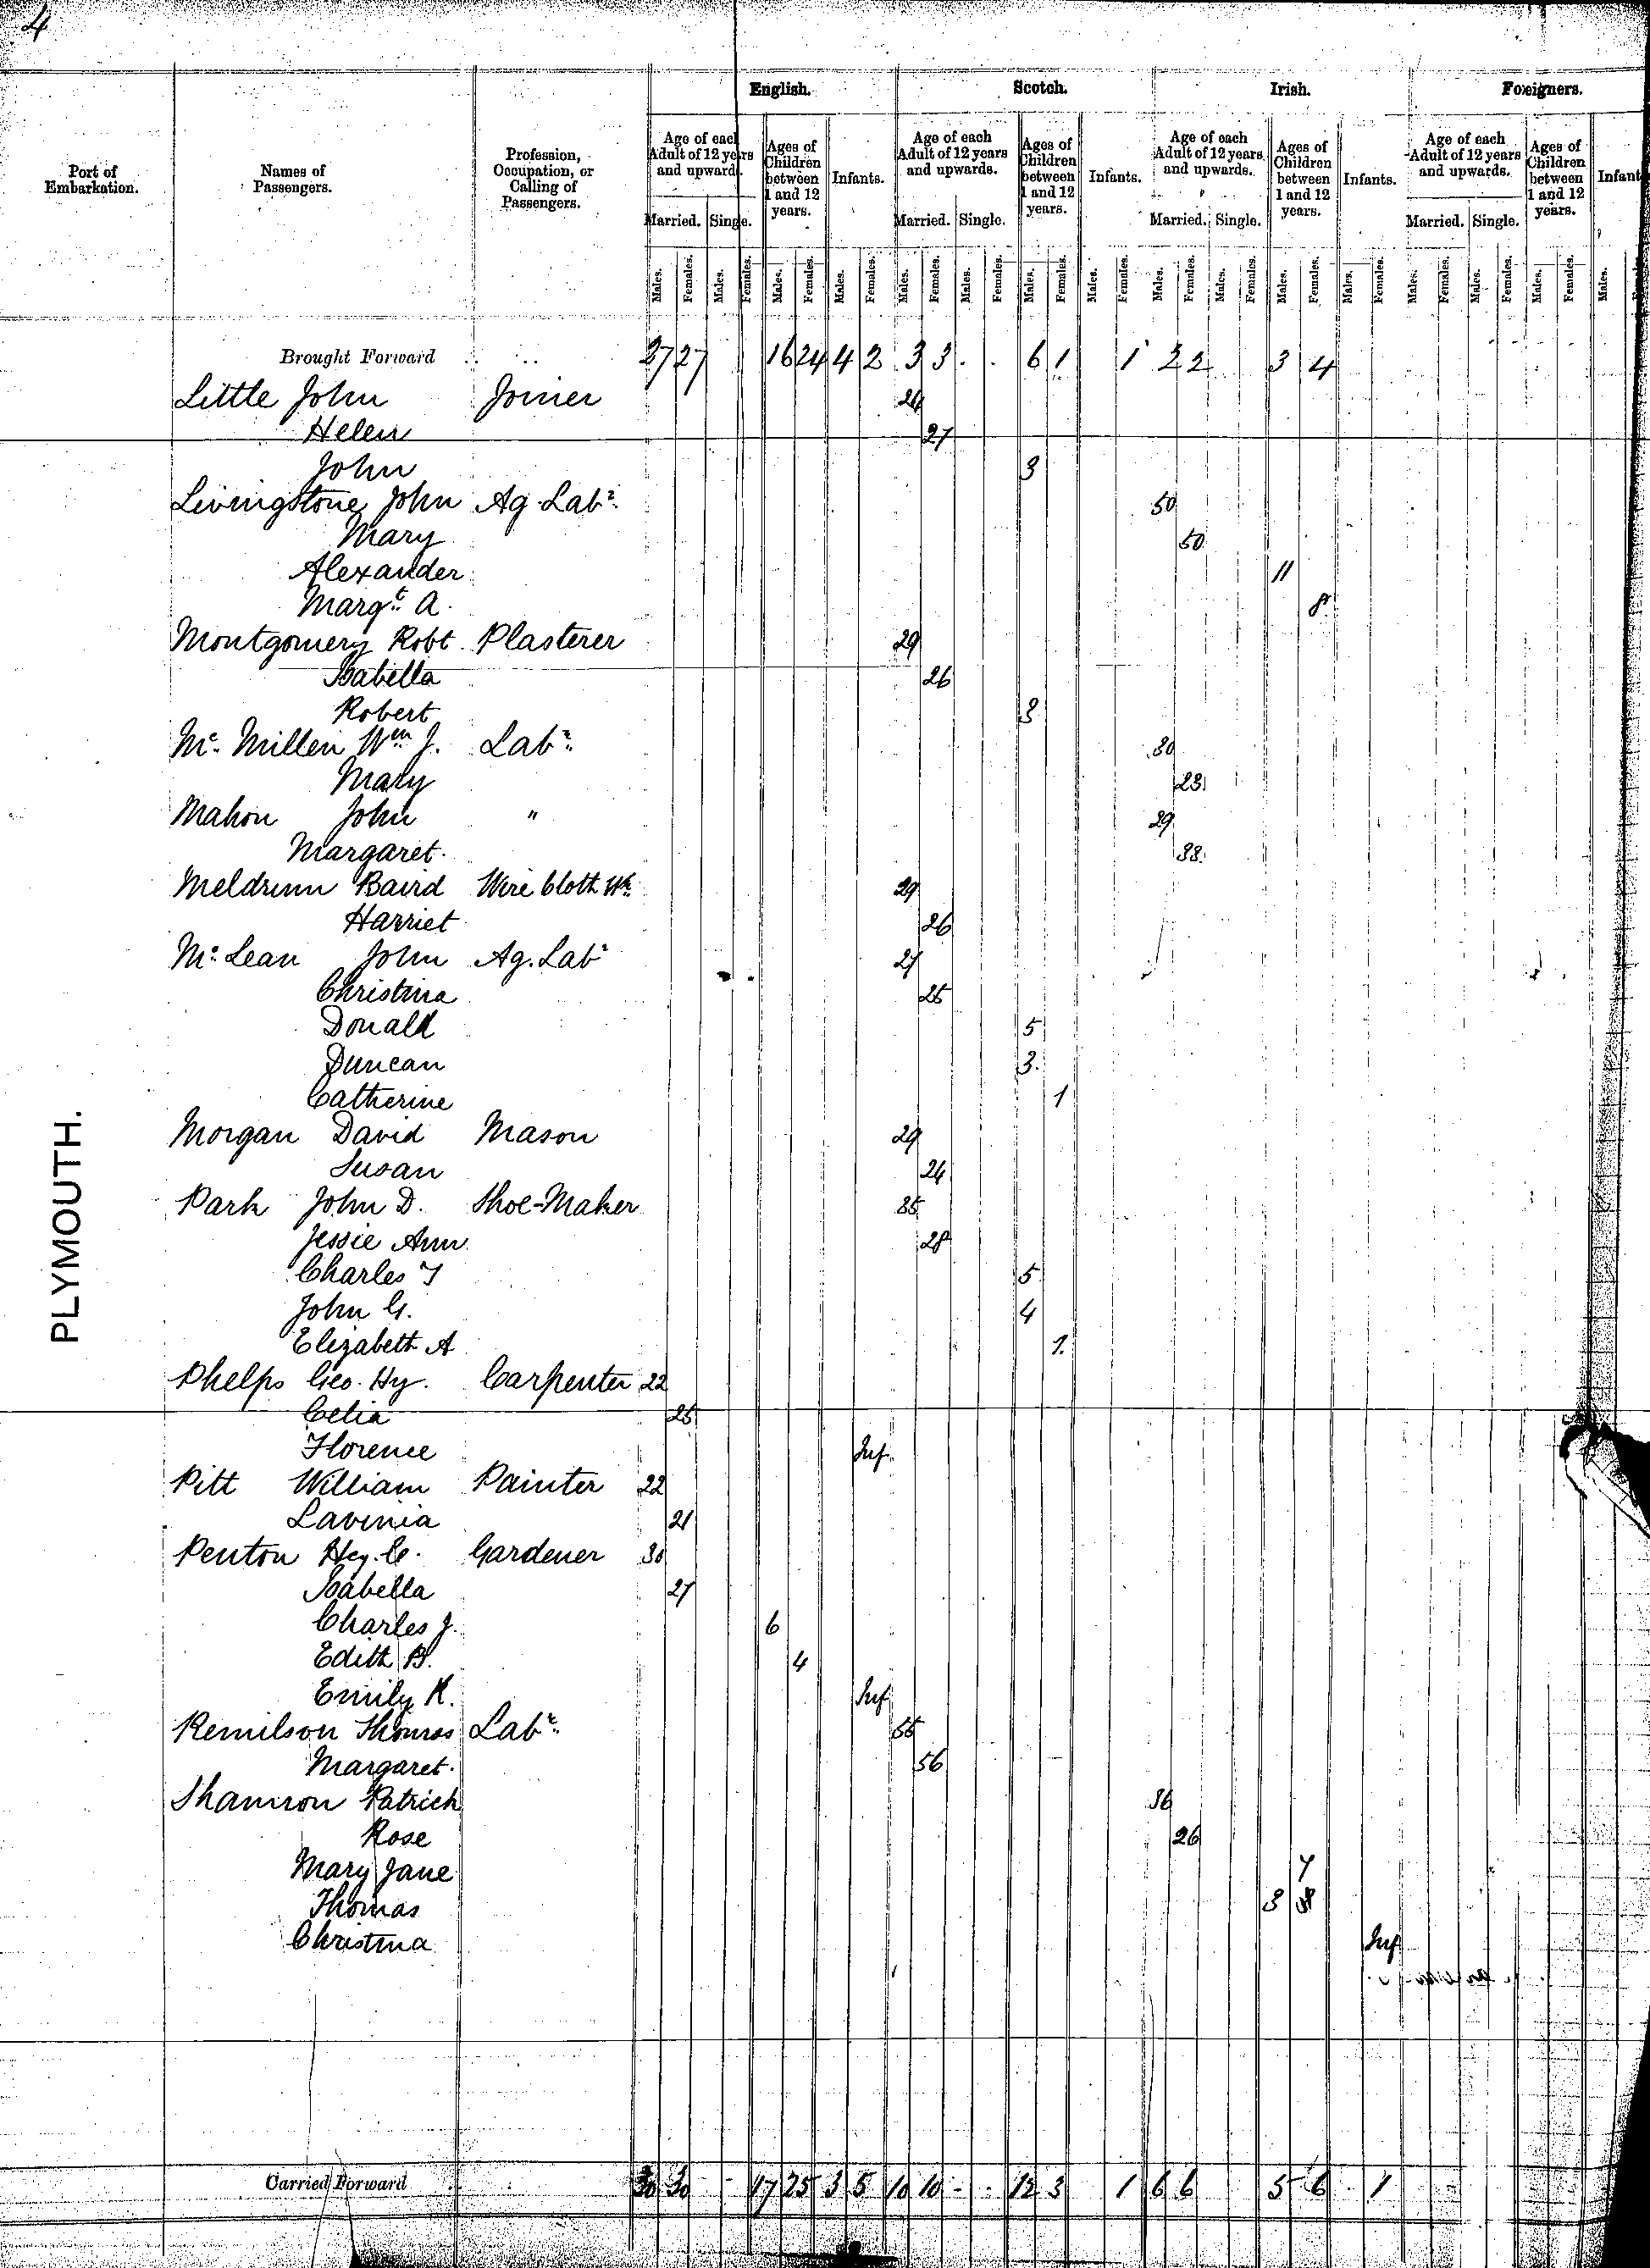 4
English. Scotch. Irish. Foreigners.
Port of Embarkation. Names of Passengers. Profession, Occupation, or Calling of Passengers. Age of each Adult of 12 years and upward. Ages of Children between 1 and 12 years. Infants. Age of each Adult of 12 years and upwards. Ages of Children between 1 and 12 years. Infants. Age of each Adult of 12 years and upwards. Ages of Children between 1 and 12 years. Infants. Age of each Adult of 12 years and upwards. Ages of Children between 1 and 12 years. Infant
Married. Single. Married. Single. Married. Single. Married. Single.
Males. Females. Males. Females. Males. Females. Males. Females. Males. Females. Males. Females. Males. Females. Males. Females. Males. Females. Males. Females. Males. Females. Males. Females. Males. Females. Males. Females. Males. Females. Males.
Brought Forward 27 27 16 24 4 2 3 3 . . 6 1 1 2 2 3 4
Little John Joiner 24
Helen 27
John 3
Livingstone John Ag. Labr. 50
Mary 50
Alexander 11
Margt. A. 8
Montgomery Robt Plasterer 29
Isabella 26
Robert 3
Mc. Millen Wm J. Labr. 30
Mary 23
Mahon John " 29
Margaret. 38
Meldrum Baird Wire Cloth Wr. 29
Harriet 26
Mc. Lean John Ag. Labr 27
Christina 25
Donald 5
Duncan 3.
Catherine 1
Morgan David Mason 29
Susan 24
Park John D. Shoe-Maker 35
Jessie Ann 28
Charles T 5
John G. 4
Elizabeth A 1.
Phelps Geo. Hy. Carpenter 22
Celia 25
Florence Inf.
Pitt William Painter 22
Lavinia 21
Penton Hey. C. Gardener 30
Isabella 27
Charles J. 6
Edith B. 4
Emily K. Inf
Remilson Thomas Labr. 55
Margaret. 56
Shannon Patrick 36
Rose 26
Mary Jane 7
Thomas 3
Christina Inf
PLYMOUTH.
Carried Forward 30 30 17 25 3 5 10 10 - . 12 3 1 6 6 5 6 1